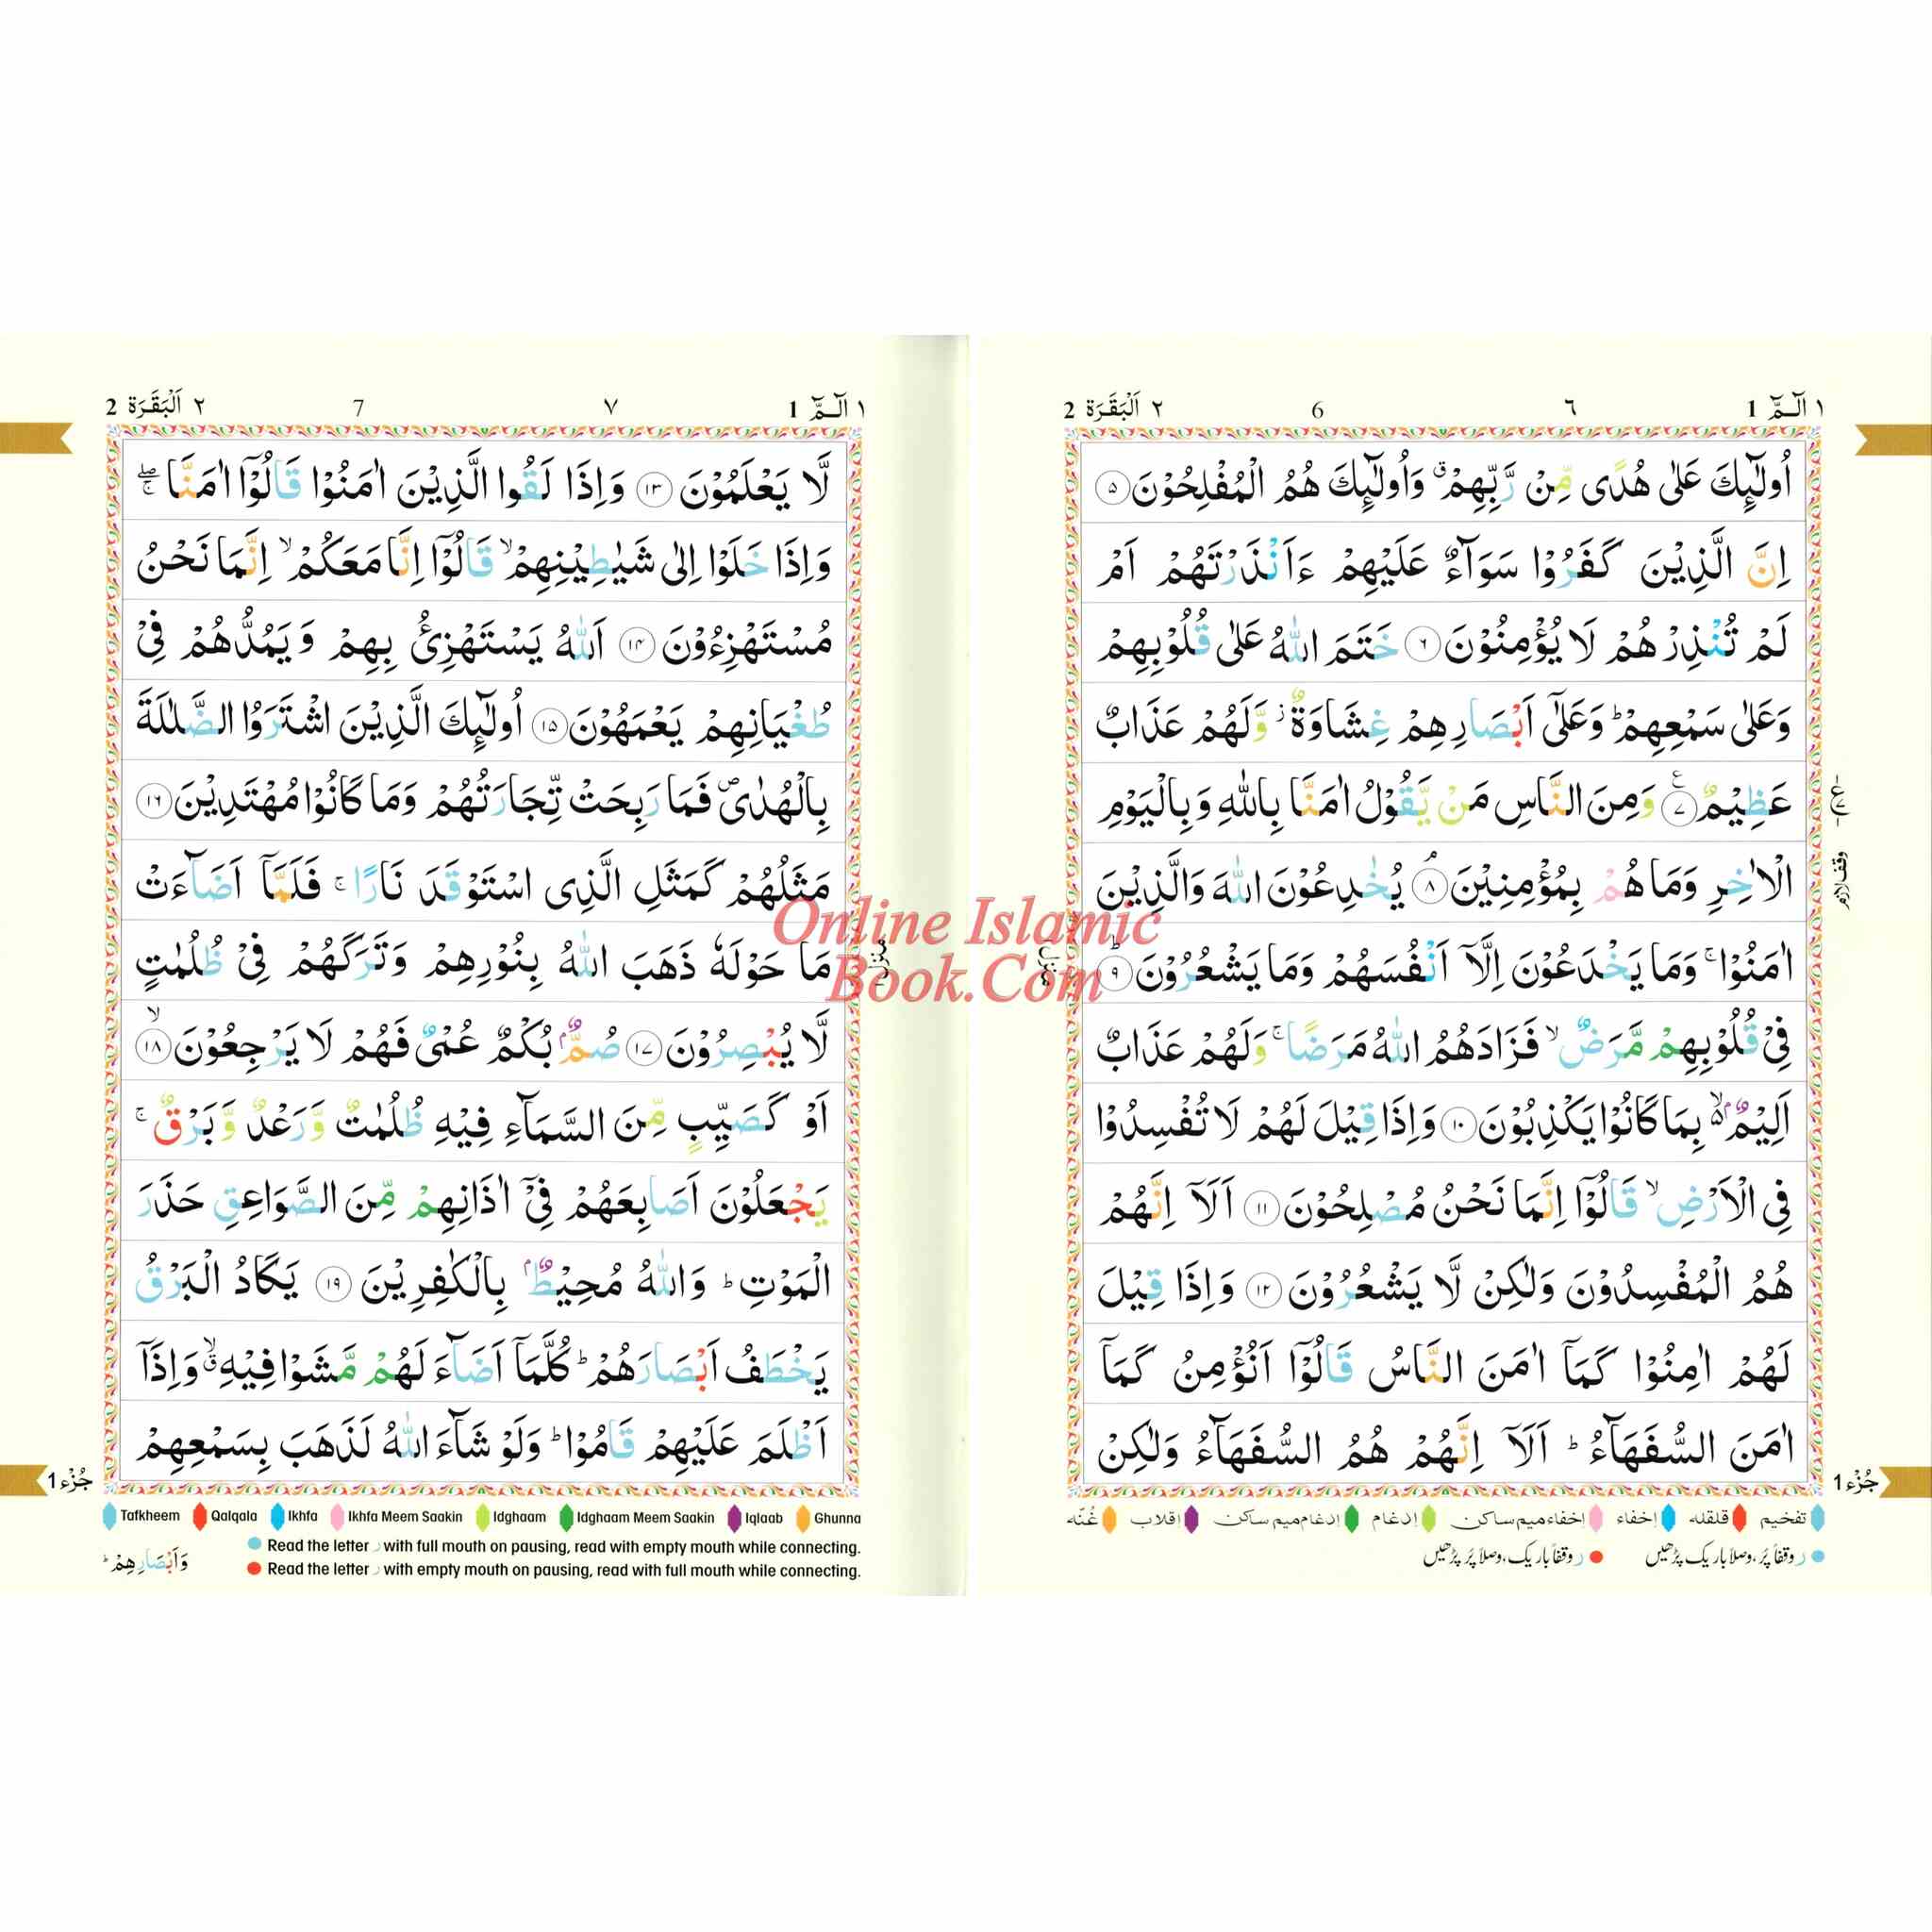 ١ الٓـمّٓ 1
٦
6
٢ اَلْبَقَرَة 2
اُولٰٓئِكَ عَلٰى هُدًى مِّنْ رَّبِّهِمْ ۙ وَاُولٰٓئِكَ هُمُ الْمُفْلِحُوْنَ ۵
اِنَّ الَّذِيْنَ كَفَرُوْا سَوَآءٌ عَلَيْهِمْ ءَاَنْذَرْتَهُمْ اَمْ
لَمْ تُنْذِرْهُمْ لَا يُؤْمِنُوْنَ ٦ خَتَمَ اللّٰهُ عَلٰى قُلُوْبِهِمْ
وَعَلٰى سَمْعِهِمْ ؕ وَعَلٰٓى اَبْصَارِهِمْ غِشَاوَةٌ ؗ وَّلَهُمْ عَذَابٌ
عَظِيْمٌ ٧ وَمِنَ النَّاسِ مَنْ يَّقُوْلُ اٰمَنَّا بِاللّٰهِ وَبِالْيَوْمِ
الْاٰخِرِ وَمَا هُمْ بِمُؤْمِنِيْنَ ۘ ٨ يُخٰدِعُوْنَ اللّٰهَ وَالَّذِيْنَ
اٰمَنُوْا ۚ وَمَا يَخْدَعُوْنَ اِلَّآ اَنْفُسَهُمْ وَمَا يَشْعُرُوْنَ ؕ ٩
فِىْ قُلُوْبِهِمْ مَّرَضٌ ۙ فَزَادَهُمُ اللّٰهُ مَرَضًا ۚ وَلَهُمْ عَذَابٌ
اَلِيْمٌۢ ۙ۬ بِمَا كَانُوْا يَكْذِبُوْنَ ١٠ وَاِذَا قِيْلَ لَهُمْ لَا تُفْسِدُوْا
فِى الْاَرْضِ ۙ قَالُوْٓا اِنَّمَا نَحْنُ مُصْلِحُوْنَ ١١ اَلَآ اِنَّهُمْ
هُمُ الْمُفْسِدُوْنَ وَلٰكِنْ لَّا يَشْعُرُوْنَ ١٢ وَاِذَا قِيْلَ
لَهُمْ اٰمِنُوْا كَمَآ اٰمَنَ النَّاسُ قَالُوْٓا اَنُؤْمِنُ كَمَآ
اٰمَنَ السُّفَهَآءُ ؕ اَلَآ اِنَّهُمْ هُمُ السُّفَهَآءُ وَلٰكِنْ
ع
وقف لازم
منزل
جُزْء 1
تفخیم قلقلہ اِخفاء اِخفاء میم ساکن اِدغام اِدغام میم ساکن اِقلاب غُنّہ
ر وقفاً پُر، وصلاً باریک پڑھیں ر وقفاً باریک، وصلاً پُر پڑھیں
١ الٓـمّٓ 1
٧
7
٢ اَلْبَقَرَة 2
لَّا يَعْلَمُوْنَ ١٣ وَاِذَا لَقُوا الَّذِيْنَ اٰمَنُوْا قَالُوْٓا اٰمَنَّا ۖۚ
وَاِذَا خَلَوْا اِلٰى شَيٰطِيْنِهِمْ ۙ قَالُوْٓا اِنَّا مَعَكُمْ ۙ اِنَّمَا نَحْنُ
مُسْتَهْزِءُوْنَ ١۴ اَللّٰهُ يَسْتَهْزِئُ بِهِمْ وَيَمُدُّهُمْ فِىْ
طُغْيَانِهِمْ يَعْمَهُوْنَ ١۵ اُولٰٓئِكَ الَّذِيْنَ اشْتَرَوُا الضَّلٰلَةَ
بِالْهُدٰى ۪ فَمَا رَبِحَتْ تِّجَارَتُهُمْ وَمَا كَانُوْا مُهْتَدِيْنَ ١٦
مَثَلُهُمْ كَمَثَلِ الَّذِى اسْتَوْقَدَ نَارًا ۚ فَلَمَّآ اَضَآءَتْ
مَا حَوْلَهٗ ذَهَبَ اللّٰهُ بِنُوْرِهِمْ وَتَرَكَهُمْ فِىْ ظُلُمٰتٍ
لَّا يُبْصِرُوْنَ ١٧ صُمٌّۢ بُكْمٌ عُمْىٌ فَهُمْ لَا يَرْجِعُوْنَ ۙ ١٨
اَوْ كَصَيِّبٍ مِّنَ السَّمَآءِ فِيْهِ ظُلُمٰتٌ وَّرَعْدٌ وَّبَرْقٌ ۚ
يَجْعَلُوْنَ اَصَابِعَهُمْ فِىْٓ اٰذَانِهِمْ مِّنَ الصَّوَاعِقِ حَذَرَ
الْمَوْتِ ؕ وَاللّٰهُ مُحِيْطٌۢ بِالْكٰفِرِيْنَ ١٩ يَكَادُ الْبَرْقُ
يَخْطَفُ اَبْصَارَهُمْ ؕ كُلَّمَآ اَضَآءَ لَهُمْ مَّشَوْا فِيْهِ ۙۗ وَاِذَآ
اَظْلَمَ عَلَيْهِمْ قَامُوْا ؕ وَلَوْ شَآءَ اللّٰهُ لَذَهَبَ بِسَمْعِهِمْ
منزل
جُزْء 1
Tafkheem Qalqala Ikhfa Ikhfa Meem Saakin Idghaam Idghaam Meem Saakin Iqlaab Ghunna
Read the letter ر with full mouth on pausing, read with empty mouth while connecting.
Read the letter ر with empty mouth on pausing, read with full mouth while connecting.
وَاَبْصَارِهِمْ ؕ
Online Islamic
Book.Com